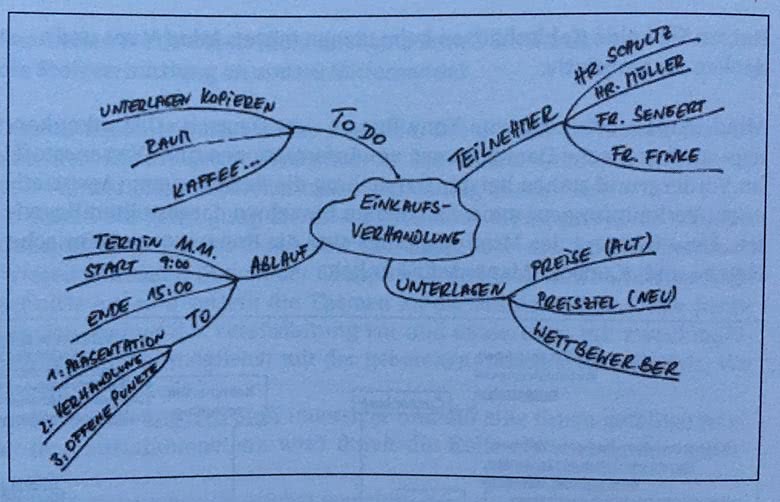 EINKAUFS-
VERHANDLUNG
TEILNEHMER
HR. SCHULTZ
HR. MÜLLER
FR. SENGERT
FR. FINKE
UNTERLAGEN
PREISE (ALT)
PREISZIEL (NEU)
WETTBEWERBER
ABLAUF
TERMIN 11.11.
START 9:00
ENDE 15:00
TO
1: PRÄSENTATION
2: VERHANDLUNG
3: OFFENE PUNKTE
TO DO
UNTERLAGEN KOPIEREN
RAUM
KAFFEE...